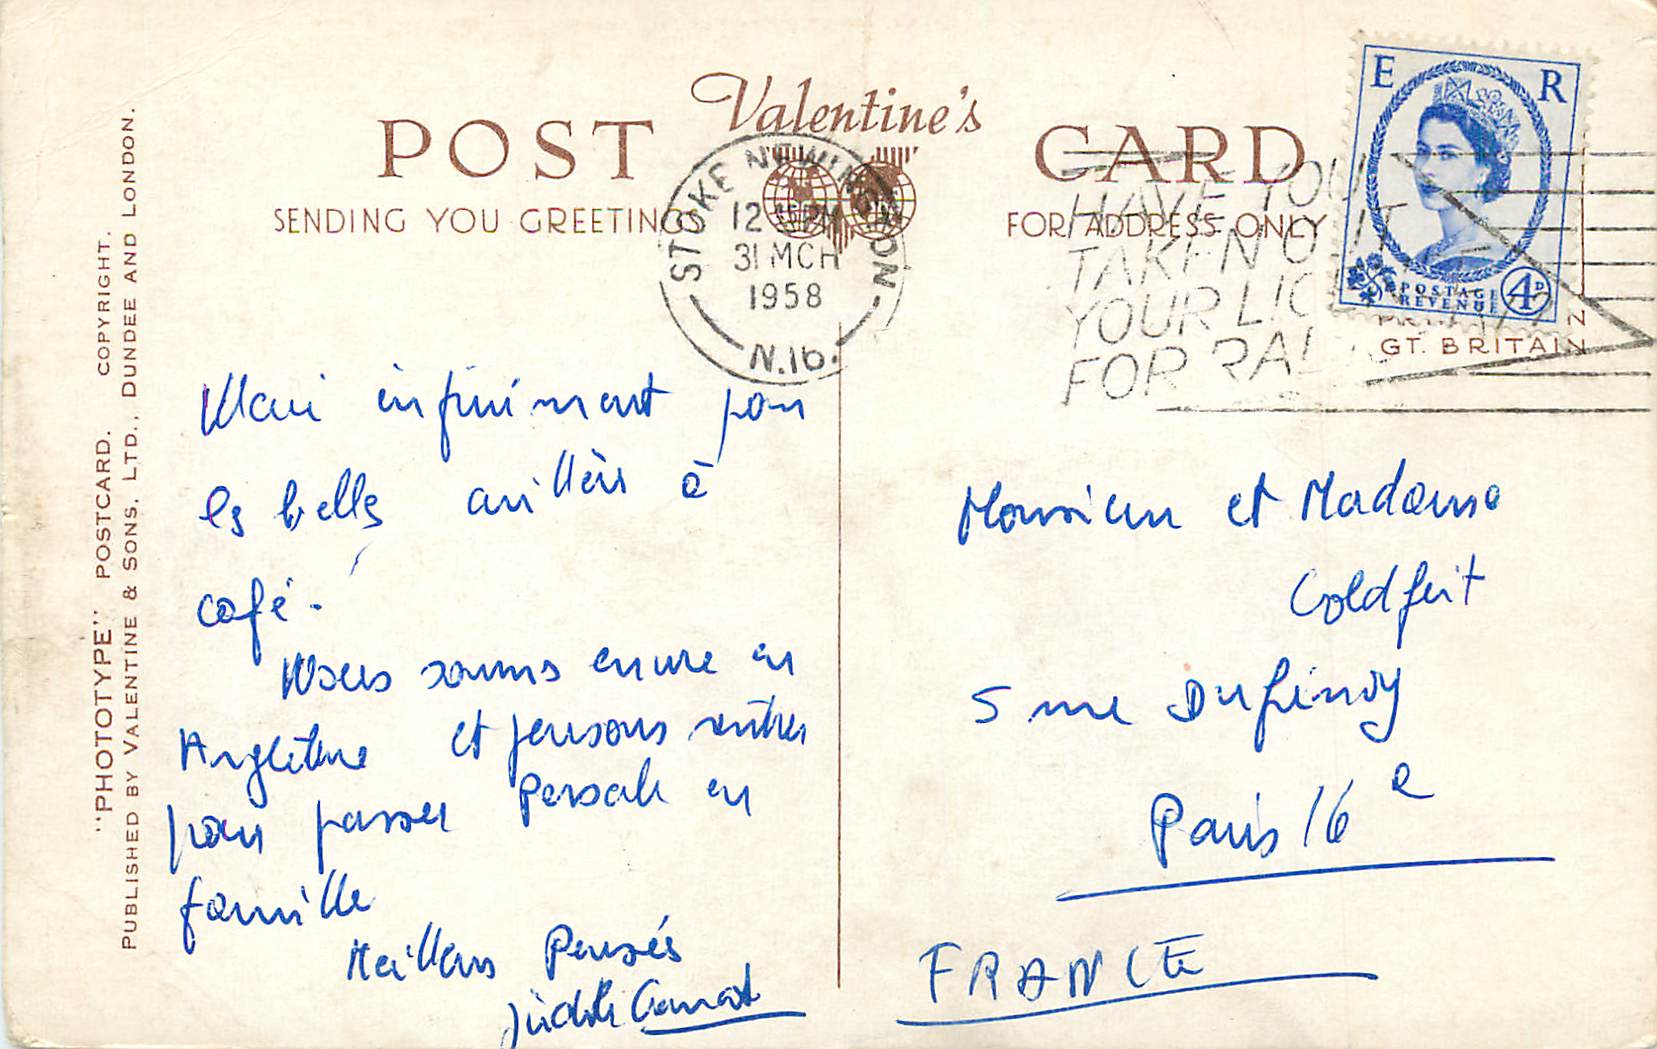 Valentine's
POST CARD
SENDING YOU GREETINGS
FOR ADDRESS ONLY
STOKE NEWINGTON
12 15 PM
31 MCH
1958
N.16.
HAVE YOU
TAKEN OUT
YOUR LIC
FOR RA
E R
POSTAGE
REVENUE
4D
GT. BRITAIN
"PHOTOTYPE" POSTCARD. COPYRIGHT.
PUBLISHED BY VALENTINE & SONS, LTD., DUNDEE AND LONDON.
infiniment pour
les belles cuillères à
café.
Nous sommes encore en
Angleterre et pensons rentrer
pour passer Pessah en
famille
Meilleures Pensées
Judith
Monsieur et Madame
Goldfeit
5 rue Dufrenoy
Paris 16e
FRANCE